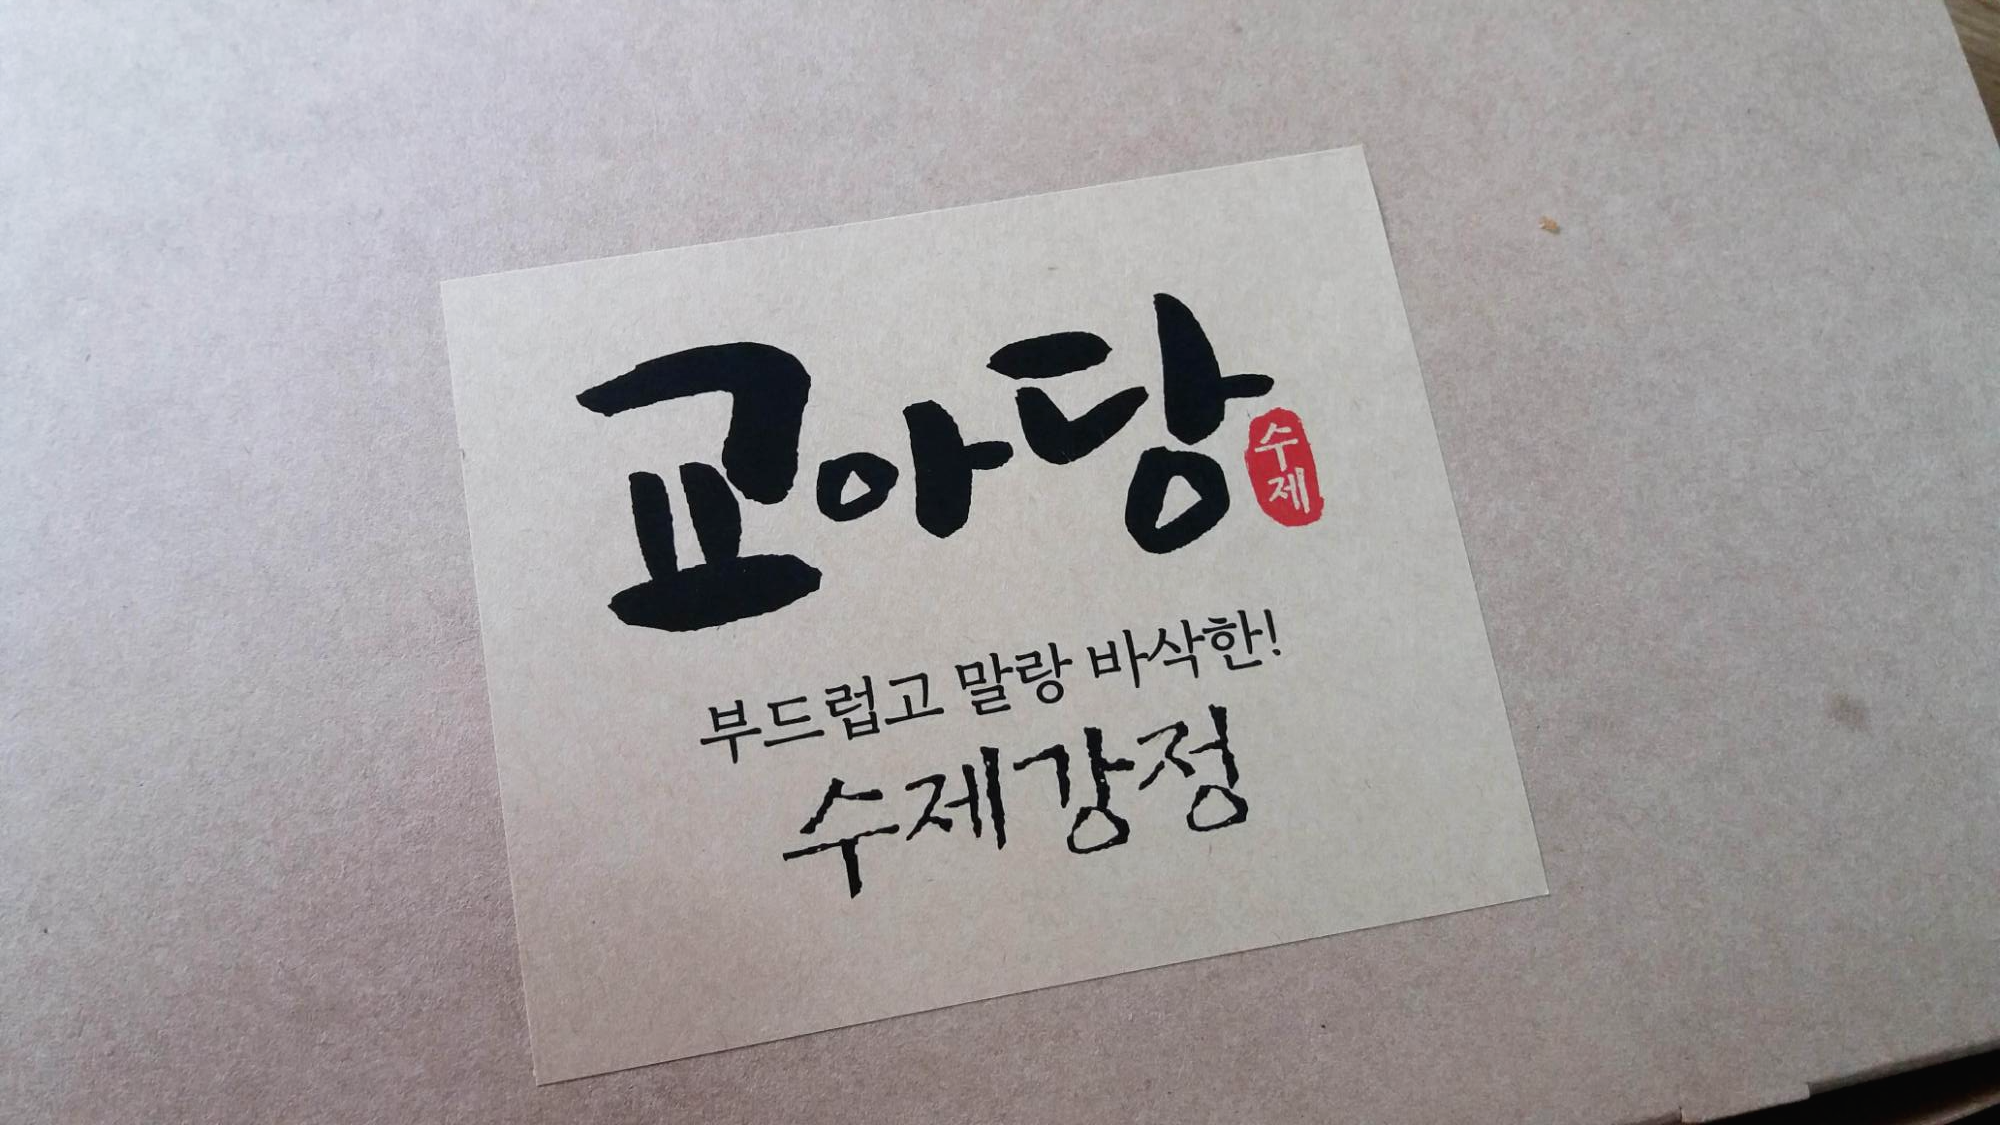 교아당
수제
부드럽고 말랑 바삭한!
수제강정